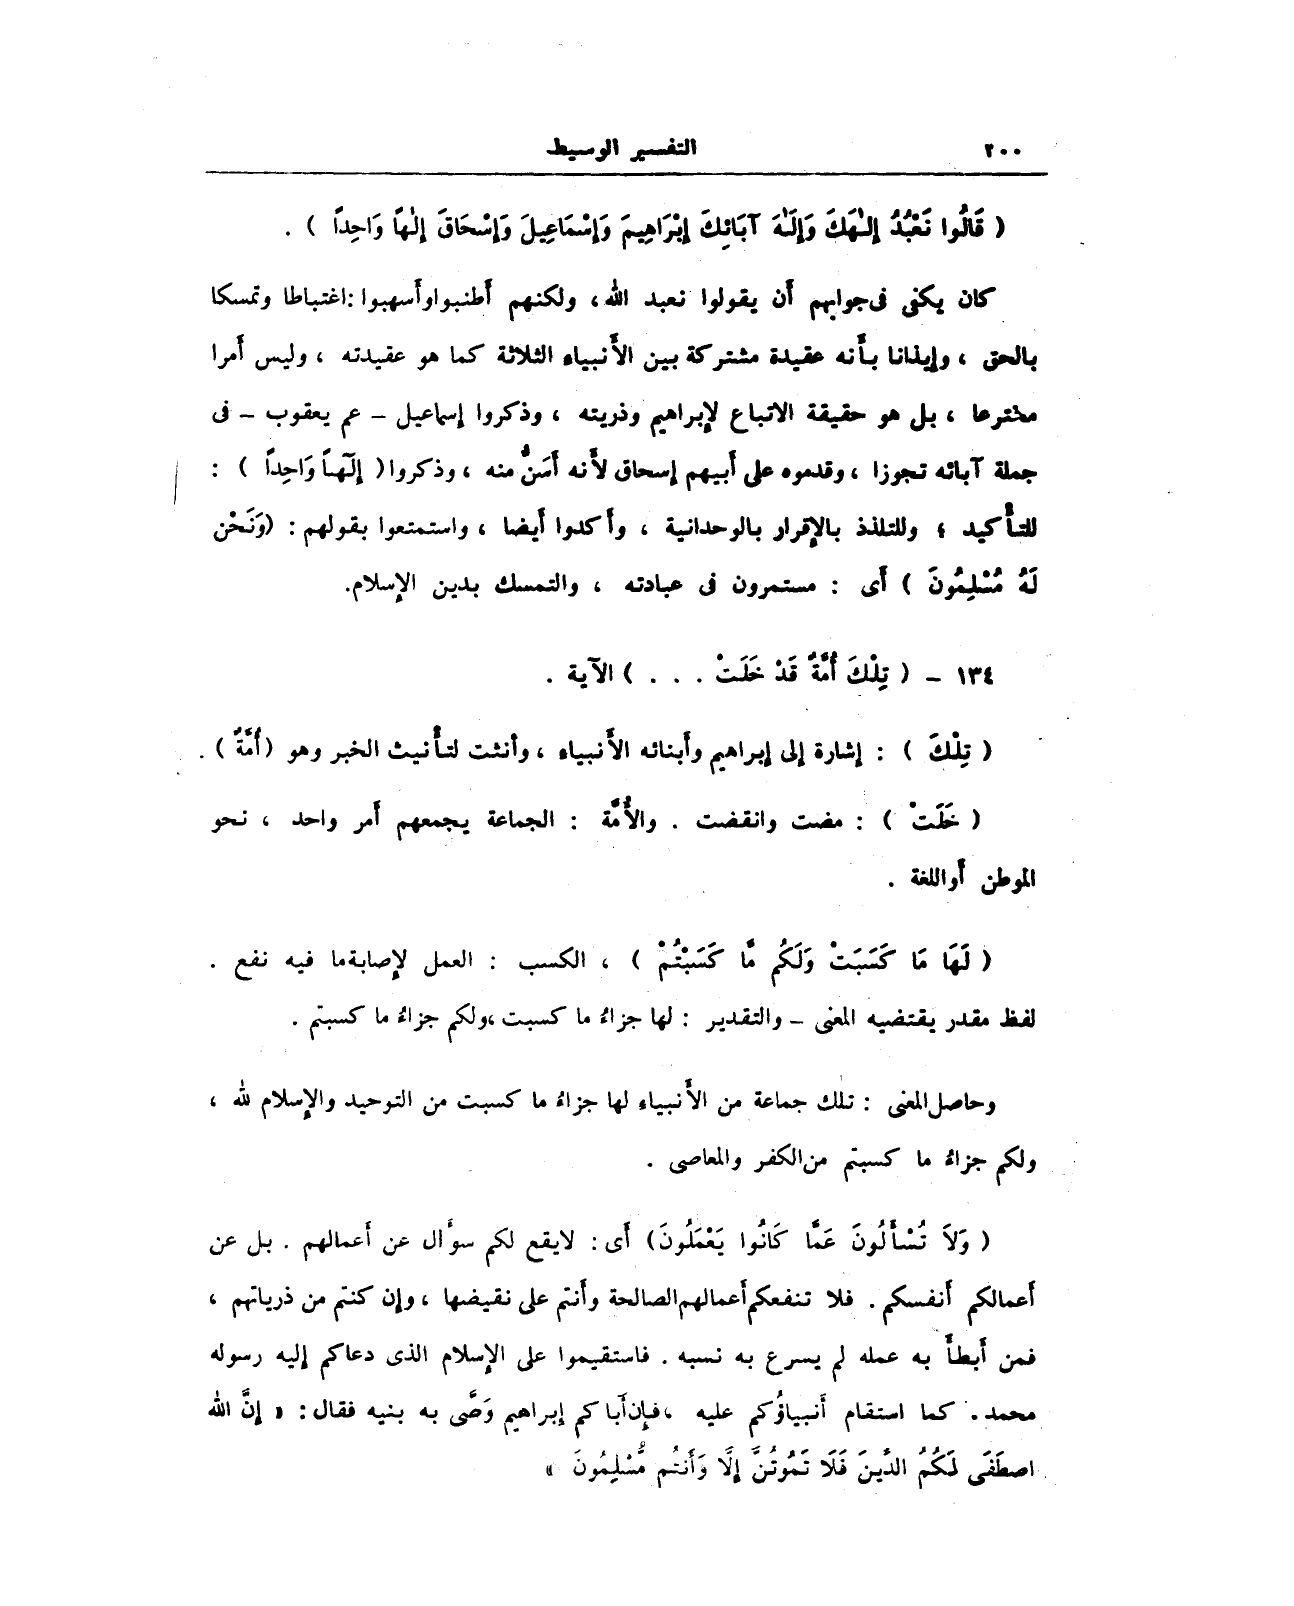 ٢٠٠ التفسير الوسيط
( قَالُوا نَعْبُدُ إِلٰهَكَ وَإِلَٰهَ آبَائِكَ إِبْرَاهِيمَ وَإِسْمَاعِيلَ وَإِسْحَاقَ إِلٰهًا وَاحِدًا ) .
كان يكفى فى جوابهم أن يقولوا نعبد الله ، ولكنهم أطنبوا وأسهبوا : اغتباطا وتمسكا
بالحق ، وإيذانا بأنه عقيدة مشتركة بين الأنبياء الثلاثة كما هو عقيدته ، وليس أمرا
مخترعا ، بل هو حقيقة الاتباع لإبراهيم وذريته ، وذكروا إسماعيل – عم يعقوب – فى
جملة آبائه تجوزا ، وقدموه على أبيهم إسحاق لأنه أَسَنُّ منه ، وذكروا ( إِلَٰهًا وَاحِدًا ) :
للتأكيد ؛ وللتلذذ بالإقرار بالوحدانية ، وأكدوا أيضا ، واستمتعوا بقولهم : (وَنَحْنُ
لَهُ مُسْلِمُونَ ) أى : مستمرون فى عبادته ، والتمسك بدين الإسلام.
١٣٤ – ( تِلْكَ أُمَّةٌ قَدْ خَلَتْ . . . ) الآية .
( تِلْكَ ) : إشارة إلى إبراهيم وأبنائه الأنبياء ، وأنثت لتأنيث الخبر وهو (أُمَّةٌ ) .
( خَلَتْ ) : مضت وانقضت . والأُمَّة : الجماعة يجمعهم أمر واحد ، نحو
الموطن أو اللغة .
( لَهَا مَا كَسَبَتْ وَلَكُم مَّا كَسَبْتُمْ ) ، الكسب : العمل لإصابة ما فيه نفع .
لفظ مقدر يقتضيه المعنى – والتقدير : لها جزاءُ ما كسبت ،ولكم جزاءُ ما كسبتم .
وحاصل المعنى : تلك جماعة من الأنبياء لها جزاءُ ما كسبت من التوحيد والإسلام لله ،
ولكم جزاءُ ما كسبتم من الكفر والمعاصى .
( وَلَا تُسْأَلُونَ عَمَّا كَانُوا يَعْمَلُونَ) أى : لايقع لكم سؤال عن أعمالهم . بل عن
أعمالكم أنفسكم . فلا تنفعكم أعمالهم الصالحة وأنتم على نقيضها ، وإن كنتم من ذرياتهم ،
فمن أبطأ به عمله لم يسرع به نسبه . فاستقيموا على الإسلام الذى دعاكم إليه رسوله
محمد . كما استقام أنبياؤكم عليه ، فإن أباكم إبراهيم وَصَّى به بنيه فقال : « إِنَّ الله
اصطَفَى لَكُمُ الدِّينَ فَلَا تَمُوتُنَّ إِلَّا وَأَنتُم مُّسْلِمُونَ »